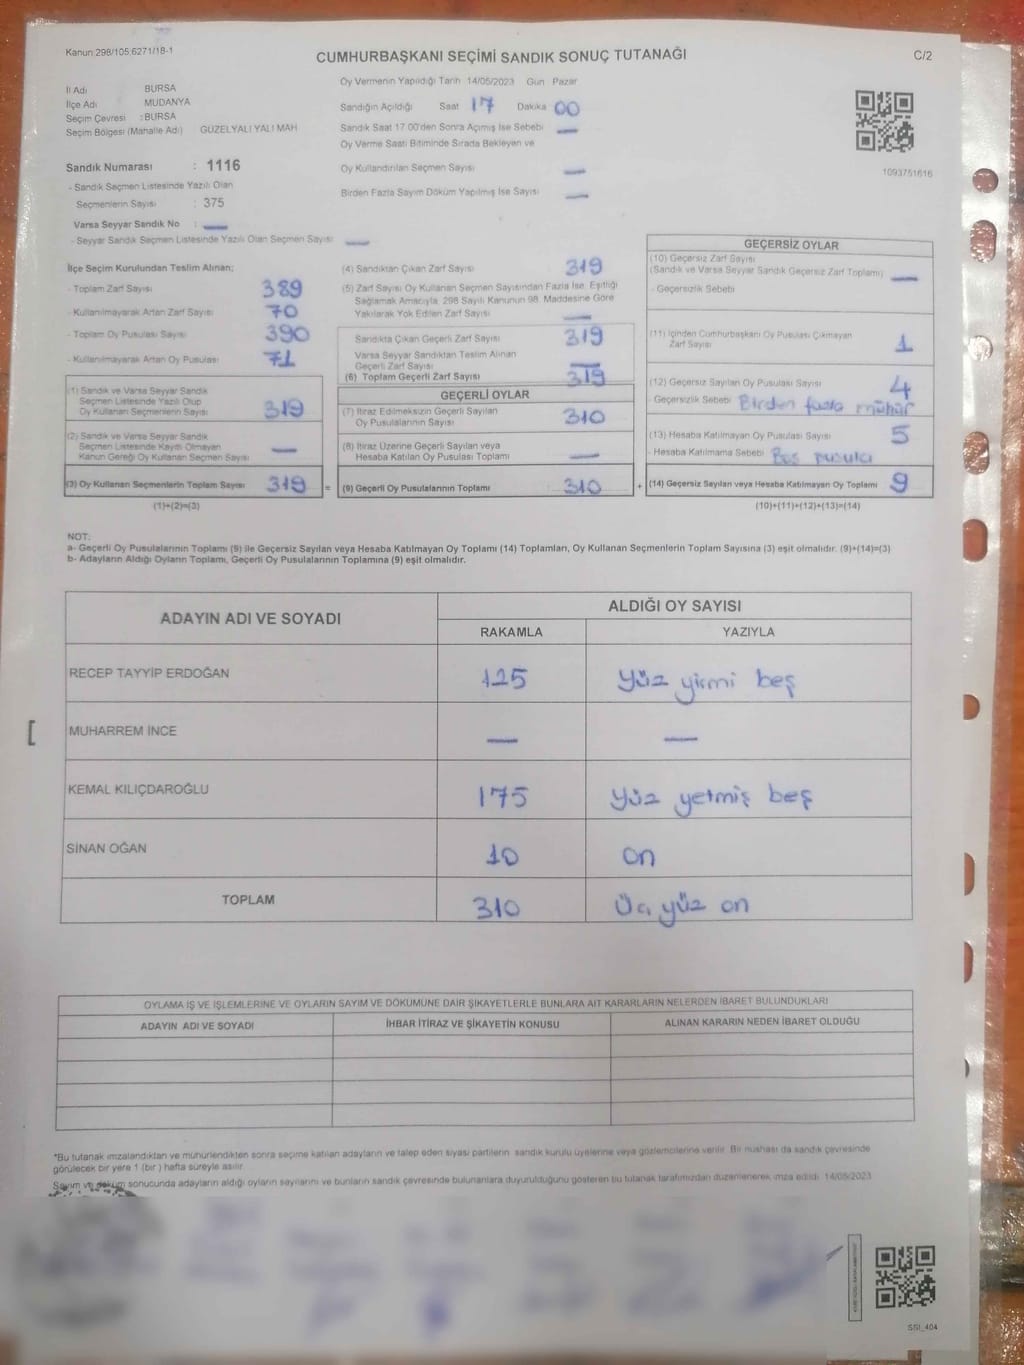 Kanun:298/105;6271/18-1
CUMHURBAŞKANI SEÇİMİ SANDIK SONUÇ TUTANAĞI
C/2
İl Adı BURSA
İlçe Adı MUDANYA
Seçim Çevresi : BURSA
Seçim Bölgesi (Mahalle Adı) GÜZELYALI YALI MAH
Oy Vermenin Yapıldığı Tarih 14/05/2023 Gün Pazar
Sandığın Açıldığı Saat 17 Dakika 00
Sandık Saat 17.00'den Sonra Açılmış İse Sebebi —
Oy Verme Saati Bitiminde Sırada Bekleyen ve
Oy Kullandırılan Seçmen Sayısı —
Birden Fazla Sayım Döküm Yapılmış İse Sayısı —
1093751616
Sandık Numarası : 1116
- Sandık Seçmen Listesinde Yazılı Olan
Seçmenlerin Sayısı : 375
Varsa Seyyar Sandık No : —
- Seyyar Sandık Seçmen Listesinde Yazılı Olan Seçmen Sayısı —
İlçe Seçim Kurulundan Teslim Alınan;
- Toplam Zarf Sayısı 389
- Kullanılmayarak Artan Zarf Sayısı 70
- Toplam Oy Pusulası Sayısı 390
- Kullanılmayarak Artan Oy Pusulası 71
(1) Sandık ve Varsa Seyyar Sandık
Seçmen Listesinde Yazılı Olup
Oy Kullanan Seçmenlerin Sayısı 319
(2) Sandık ve Varsa Seyyar Sandık
Seçmen Listesinde Kayıtlı Olmayan
Kanun Gereği Oy Kullanan Seçmen Sayısı —
(3) Oy Kullanan Seçmenlerin Toplam Sayısı 319 =
(1)+(2)=(3)
(4) Sandıktan Çıkan Zarf Sayısı 319
(5) Zarf Sayısı Oy Kullanan Seçmen Sayısından Fazla İse, Eşitliği
Sağlamak Amacıyla, 298 Sayılı Kanunun 98. Maddesine Göre
Yakılarak Yok Edilen Zarf Sayısı —
Sandıkta Çıkan Geçerli Zarf Sayısı 319
Varsa Seyyar Sandıktan Teslim Alınan
Geçerli Zarf Sayısı —
(6) Toplam Geçerli Zarf Sayısı 319
GEÇERLİ OYLAR
(7) İtiraz Edilmeksizin Geçerli Sayılan
Oy Pusulalarının Sayısı 310
(8) İtiraz Üzerine Geçerli Sayılan veya
Hesaba Katılan Oy Pusulası Toplamı —
(9) Geçerli Oy Pusulalarının Toplamı 310 +
GEÇERSİZ OYLAR
(10) Geçersiz Zarf Sayısı
(Sandık ve Varsa Seyyar Sandık Geçersiz Zarf Toplamı) —
- Geçersizlik Sebebi
(11) İçinden Cumhurbaşkanı Oy Pusulası Çıkmayan
Zarf Sayısı 1
(12) Geçersiz Sayılan Oy Pusulası Sayısı 4
- Geçersizlik Sebebi Birden fazla mühür
(13) Hesaba Katılmayan Oy Pusulası Sayısı 5
- Hesaba Katılmama Sebebi Boş pusula
(14) Geçersiz Sayılan veya Hesaba Katılmayan Oy Toplamı 9
(10)+(11)+(12)+(13)=(14)
NOT:
a- Geçerli Oy Pusulalarının Toplamı (9) ile Geçersiz Sayılan veya Hesaba Katılmayan Oy Toplamı (14) Toplamları, Oy Kullanan Seçmenlerin Toplam Sayısına (3) eşit olmalıdır. (9)+(14)=(3)
b- Adayların Aldığı Oyların Toplamı, Geçerli Oy Pusulalarının Toplamına (9) eşit olmalıdır.
ADAYIN ADI VE SOYADI
ALDIĞI OY SAYISI
RAKAMLA YAZIYLA
RECEP TAYYİP ERDOĞAN 125 Yüz yirmi beş
MUHARREM İNCE — —
KEMAL KILIÇDAROĞLU 175 Yüz yetmiş beş
SİNAN OĞAN 10 on
TOPLAM 310 Üç yüz on
OYLAMA İŞ VE İŞLEMLERİNE VE OYLARIN SAYIM VE DÖKÜMÜNE DAİR ŞİKAYETLERLE BUNLARA AİT KARARLARIN NELERDEN İBARET BULUNDUKLARI
ADAYIN ADI VE SOYADI İHBAR İTİRAZ VE ŞİKAYETİN KONUSU ALINAN KARARIN NEDEN İBARET OLDUĞU
*Bu tutanak imzalandıktan ve mühürlendikten sonra seçime katılan adayların ve talep eden siyasi partilerin sandık kurulu üyelerine veya gözlemcilerine verilir. Bir nüshası da sandık çevresinde
görülecek bir yere 1 (bir) hafta süreyle asılır.
Sayım ve döküm sonucunda adayların aldığı oyların sayılarını ve bunların sandık çevresinde bulunanlara duyurulduğunu gösteren bu tutanak tarafımızdan düzenlenerek imza edildi. 14/05/2023
SSI_404